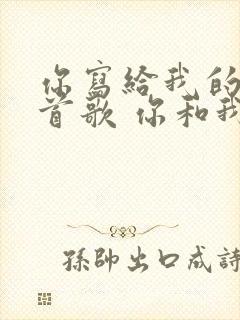 你寫給我的
首歌 你和我
孫帥出口成詩